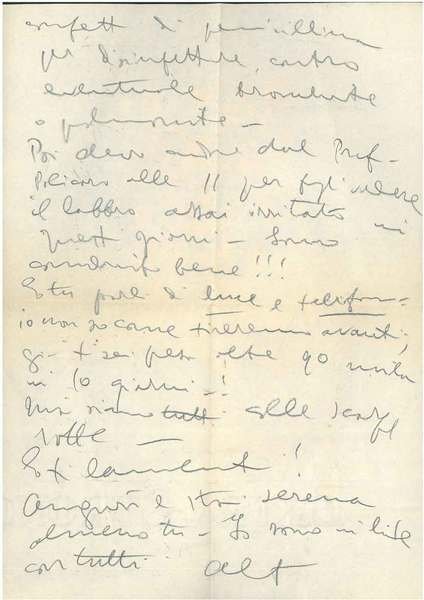 confetti di penicillina
per disinfettare, contro
eventuale bronchite
o polmonite -
Poi devo andare dal Prof-
alle 11 per fargli vedere
il labbro assai irritato in
questi giorni - Sono
bene!!!
E tu parli di luce e telefon-
io non so come tireremo avanti,
già ti sei preso oltre 90 mila
in 10 giorni -!
Noi siamo tutti alle scarpe
rotte -
E ti lamenti!
Auguri e stai serena
almeno tu - Io sono in lite
con tutti alf